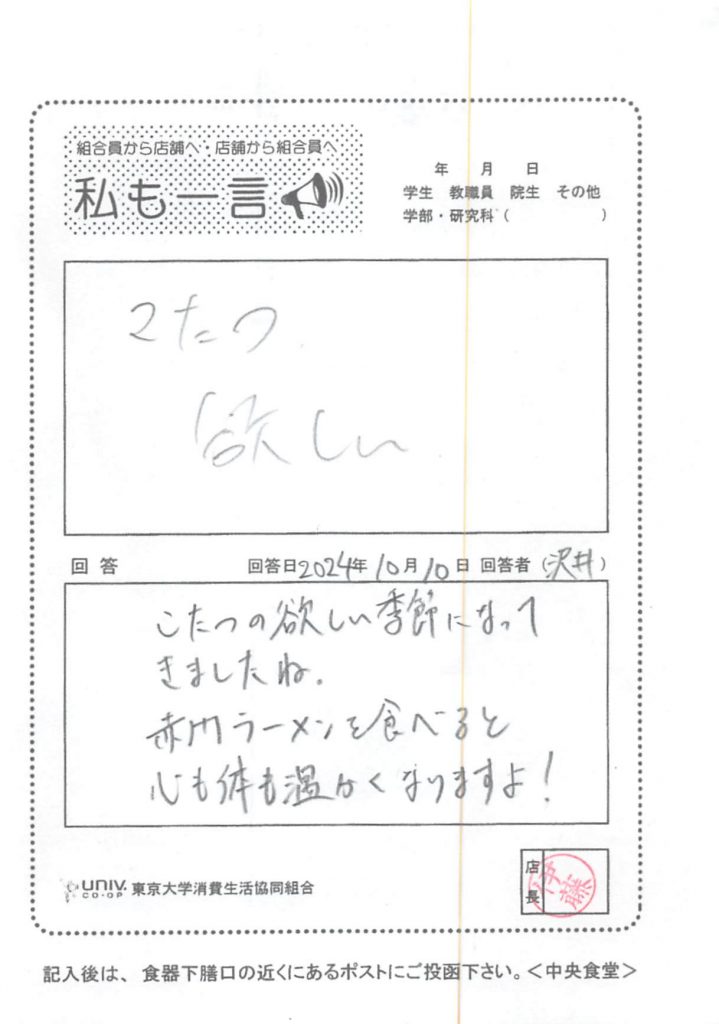 組合員から店舗へ・店舗から組合員へ
私も一言
年 月 日
学生 教職員 院生 その他
学部・研究科( )
こたつ
欲しい
回答 回答日2024年10月10日 回答者(沢井)
こたつの欲しい季節になって
きましたね.
赤門ラーメンを食べると
心も体も温かくなりますよ!
UNIV. CO-OP 東京大学消費生活協同組合
店長 伊藤
記入後は、食器下膳口の近くにあるポストにご投函下さい。<中央食堂>